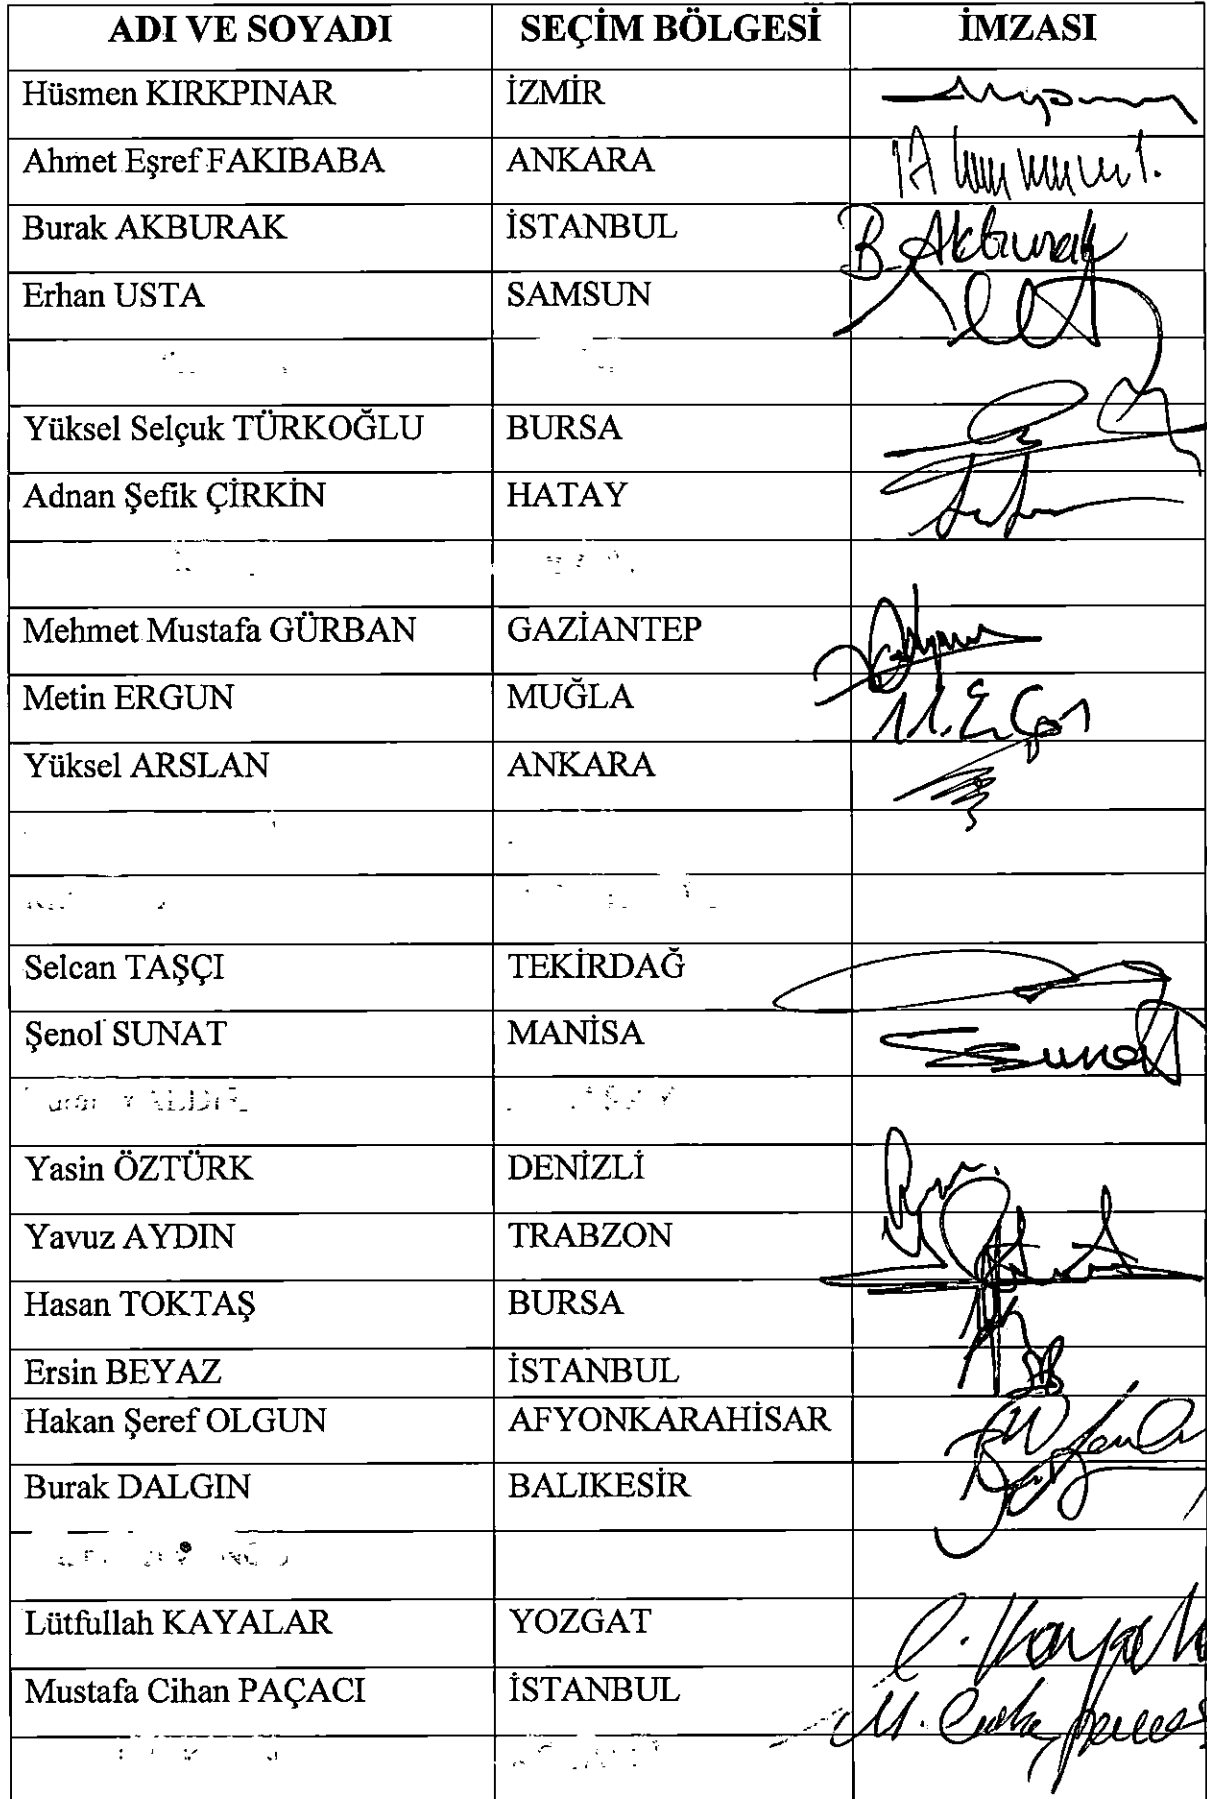 ADI VE SOYADI SEÇİM BÖLGESİ İMZASI
Hüsmen KIRKPINAR İZMİR
Ahmet Eşref FAKIBABA ANKARA
Burak AKBURAK İSTANBUL B. Akburak
Erhan USTA SAMSUN
Yüksel Selçuk TÜRKOĞLU BURSA
Adnan Şefik ÇİRKİN HATAY
Mehmet Mustafa GÜRBAN GAZİANTEP
Metin ERGUN MUĞLA
Yüksel ARSLAN ANKARA
Selcan TAŞÇI TEKİRDAĞ
Şenol SUNAT MANİSA Sunat
Yasin ÖZTÜRK DENİZLİ
Yavuz AYDIN TRABZON
Hasan TOKTAŞ BURSA
Ersin BEYAZ İSTANBUL
Hakan Şeref OLGUN AFYONKARAHİSAR
Burak DALGIN BALIKESİR
Lütfullah KAYALAR YOZGAT
Mustafa Cihan PAÇACI İSTANBUL